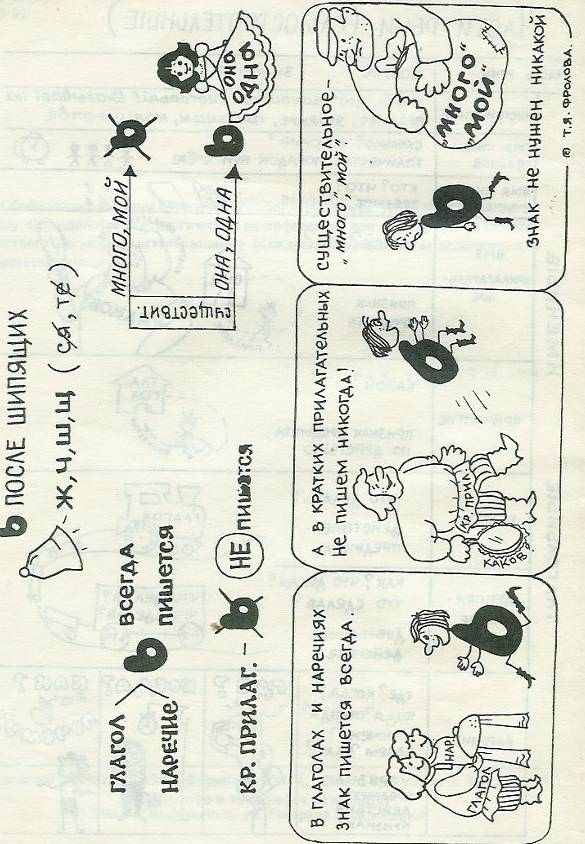 Ь ПОСЛЕ ШИПЯЩИХ
Ж, Ч, Ш, Щ (СЯ, ТЕ)
ГЛАГОЛ
НАРЕЧИЕ
Ь
всегда
пишется
КР. ПРИЛАГ. – Ь
НЕ пишется
СУЩЕСТВИТ.
МНОГО, МОЙ
Ь
ОНА, ОДНА
Ь
ОНА
ОДНА
В ГЛАГОЛАХ И НАРЕЧИЯХ
ЗНАК ПИШЕТСЯ ВСЕГДА.
ГЛАГОЛ
НАР.
Ь
А В КРАТКИХ ПРИЛАГАТЕЛЬНЫХ
НЕ ПИШЕМ НИКОГДА!
КР. ПРИЛ.
КАКОВ?
Ь
СУЩЕСТВИТЕЛЬНОЕ–
„МНОГО", „МОЙ"?
„МНОГО"
„МОЙ"
Ь
ЗНАК НЕ НУЖЕН НИКАКОЙ
© Т.Я. ФРОЛОВА.